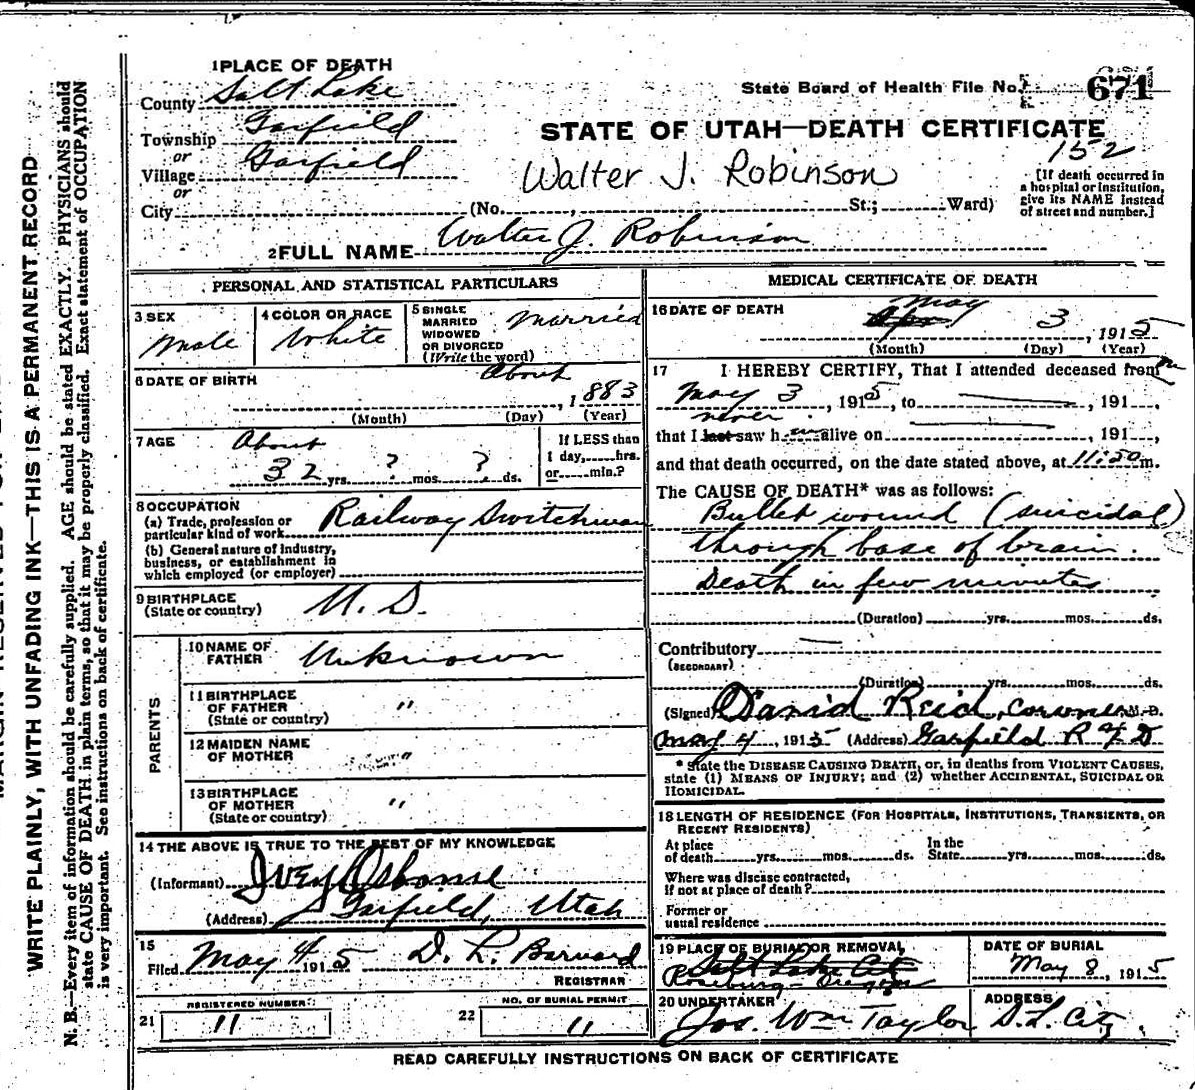 1 PLACE OF DEATH
County Salt Lake
State Board of Health File No. 671
Township Garfield
STATE OF UTAH—DEATH CERTIFICATE
152
or
Village Garfield
Walter J. Robinson
or
City (No. , St.; Ward)
[If death occurred in a hospital or institution, give its NAME instead of street and number.]
2 FULL NAME Walter J. Robinson
PERSONAL AND STATISTICAL PARTICULARS
3 SEX
Male
4 COLOR OR RACE
White
5 SINGLE
MARRIED
WIDOWED
OR DIVORCED
(Write the word)
Married
6 DATE OF BIRTH
About
, 1883
(Month) (Day) (Year)
7 AGE
About
32 yrs. ? mos. ? ds.
If LESS than
1 day, hrs.
or min.?
8 OCCUPATION
(a) Trade, profession or
particular kind of work Railway Switchman
(b) General nature of industry,
business, or establishment in
which employed (or employer)
9 BIRTHPLACE
(State or country) U. S.
PARENTS
10 NAME OF
FATHER Unknown
11 BIRTHPLACE
OF FATHER "
(State or country)
12 MAIDEN NAME
OF MOTHER "
13 BIRTHPLACE
OF MOTHER "
(State or country)
14 THE ABOVE IS TRUE TO THE BEST OF MY KNOWLEDGE
(Informant) Ivey Osborne
(Address) Garfield, Utah
15
Filed May 4 1915 D. L. Barnard
REGISTRAR
REGISTERED NUMBER
21 11
NO. OF BURIAL PERMIT
22 11
MEDICAL CERTIFICATE OF DEATH
16 DATE OF DEATH
May
Apr 3, 1915
(Month) (Day) (Year)
17 I HEREBY CERTIFY, That I attended deceased from on
May 3, 1915, to , 191 ,
never
that I last saw him alive on , 191 ,
and that death occurred, on the date stated above, at 11:50 m.
The CAUSE OF DEATH* was as follows:
Bullet wound (suicidal)
through base of brain.
Death in few minutes
(Duration) yrs. mos. ds.
Contributory
(SECONDARY)
(Duration) yrs. mos. ds.
(Signed) David Reid, Coroner M. D.
May 4, 1915 (Address) Garfield R #2 D
* State the DISEASE CAUSING DEATH, or, in deaths from VIOLENT CAUSES,
state (1) MEANS OF INJURY; and (2) whether ACCIDENTAL, SUICIDAL OR
HOMICIDAL.
18 LENGTH OF RESIDENCE (FOR HOSPITALS, INSTITUTIONS, TRANSIENTS, OR
RECENT RESIDENTS)
At place
of death yrs. mos. ds.
In the
State yrs. mos. ds.
Where was disease contracted,
if not at place of death?
Former or
usual residence
19 PLACE OF BURIAL OR REMOVAL
Salt Lake City
Roseburg Oregon
DATE OF BURIAL
May 8, 1915
20 UNDERTAKER
Jos. Wm Taylor
ADDRESS
S. L. City.
READ CAREFULLY INSTRUCTIONS ON BACK OF CERTIFICATE
WRITE PLAINLY, WITH UNFADING INK—THIS IS A PERMANENT RECORD
N. B.—Every item of information should be carefully supplied. AGE should be stated EXACTLY. PHYSICIANS should
state CAUSE OF DEATH in plain terms, so that it may be properly classified. Exact statement of OCCUPATION
is very important. See instructions on back of certificate.